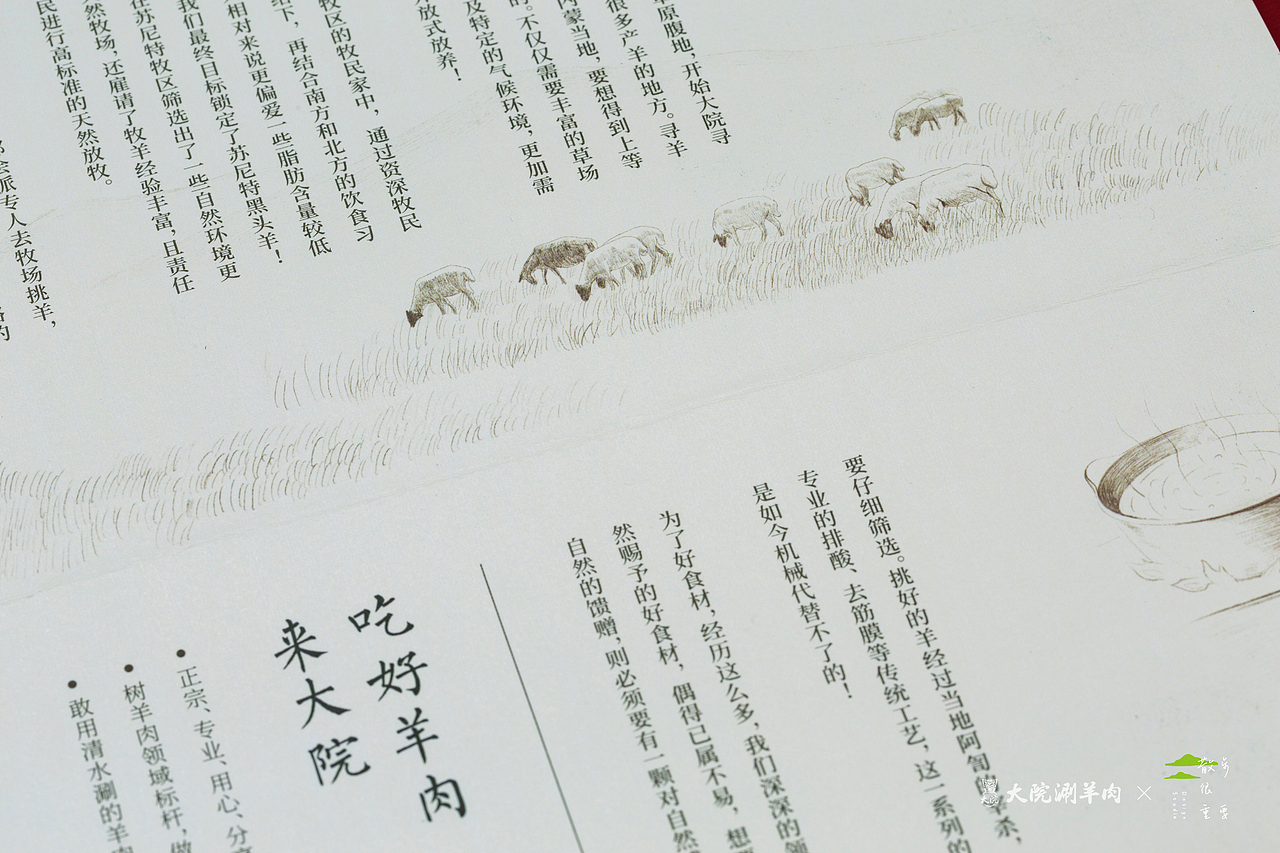 原腹地，开始大院寻
很多产羊的地方。寻羊
内蒙当地，要想得到上等
的。不仅仅需要丰富的草场
及特定的气候环境，更加需
放式放养！
牧区的牧民家中，通过资深牧民
下，再结合南方和北方的饮食习
相对来说更偏爱一些脂肪含量较低
我们最终目标锁定了苏尼特黑头羊！
在苏尼特牧区筛选出了一些自然环境更
然牧场，还雇请了牧羊经验丰富，且责任
民进行高标准的天然放牧。
会派专人去牧场挑羊，
的
要仔细筛选。挑好的羊经过当地阿訇的宰杀，
专业的排酸、去筋膜等传统工艺，这一系列的
是如今机械代替不了的！
为了好食材，经历这么多，我们深深的领
然赐予的好食材，偶得已属不易，想
自然的馈赠，则必须要有一颗对自然
吃好羊肉
来大院
• 正宗、专业、用心、分
• 树羊肉领域标杆，做
• 敢用清水涮的羊肉
大院涮羊肉 ×
散步很重要